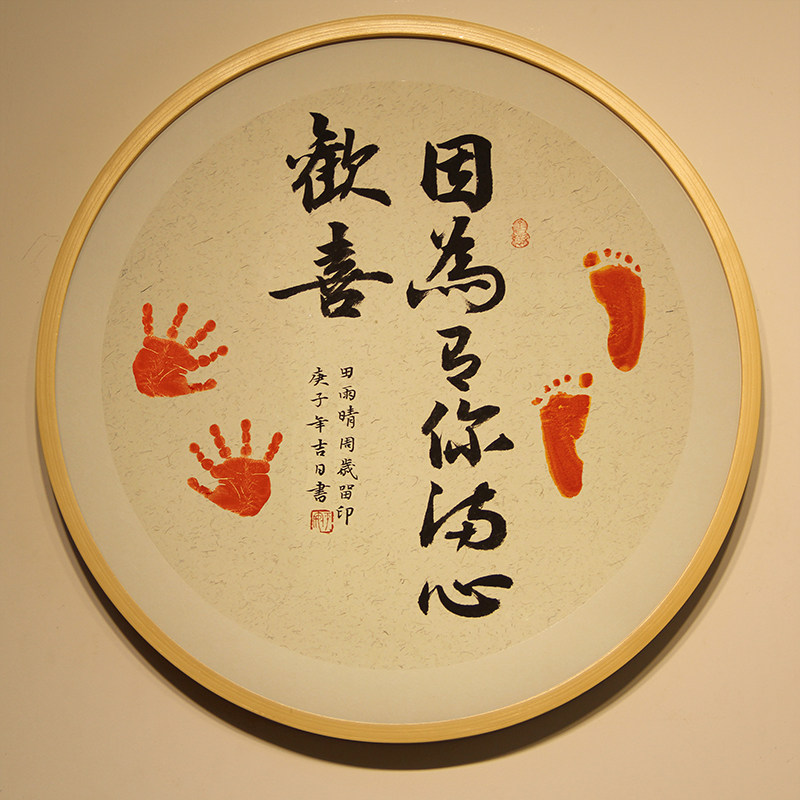 因為有你滿心
歡喜
田雨晴周歲留印
庚子年吉日書